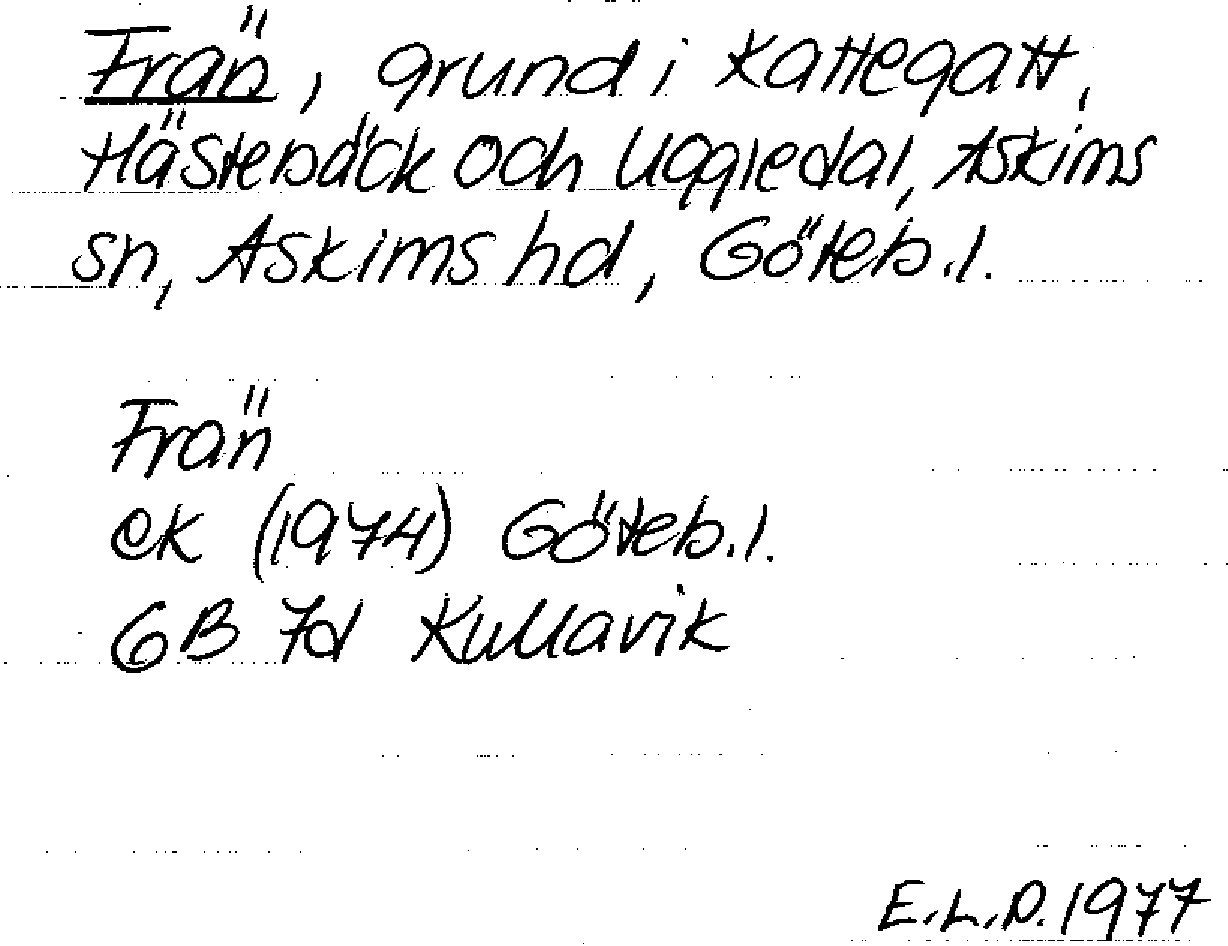 Frän, grund i Kattegatt,
Hästebäck och Uggledal, Askims
sn, Askims hd, Göteb.l.
Frän
ek (1974) Göteb.l.
6B 7d Kullavik
E.L.P. 1977